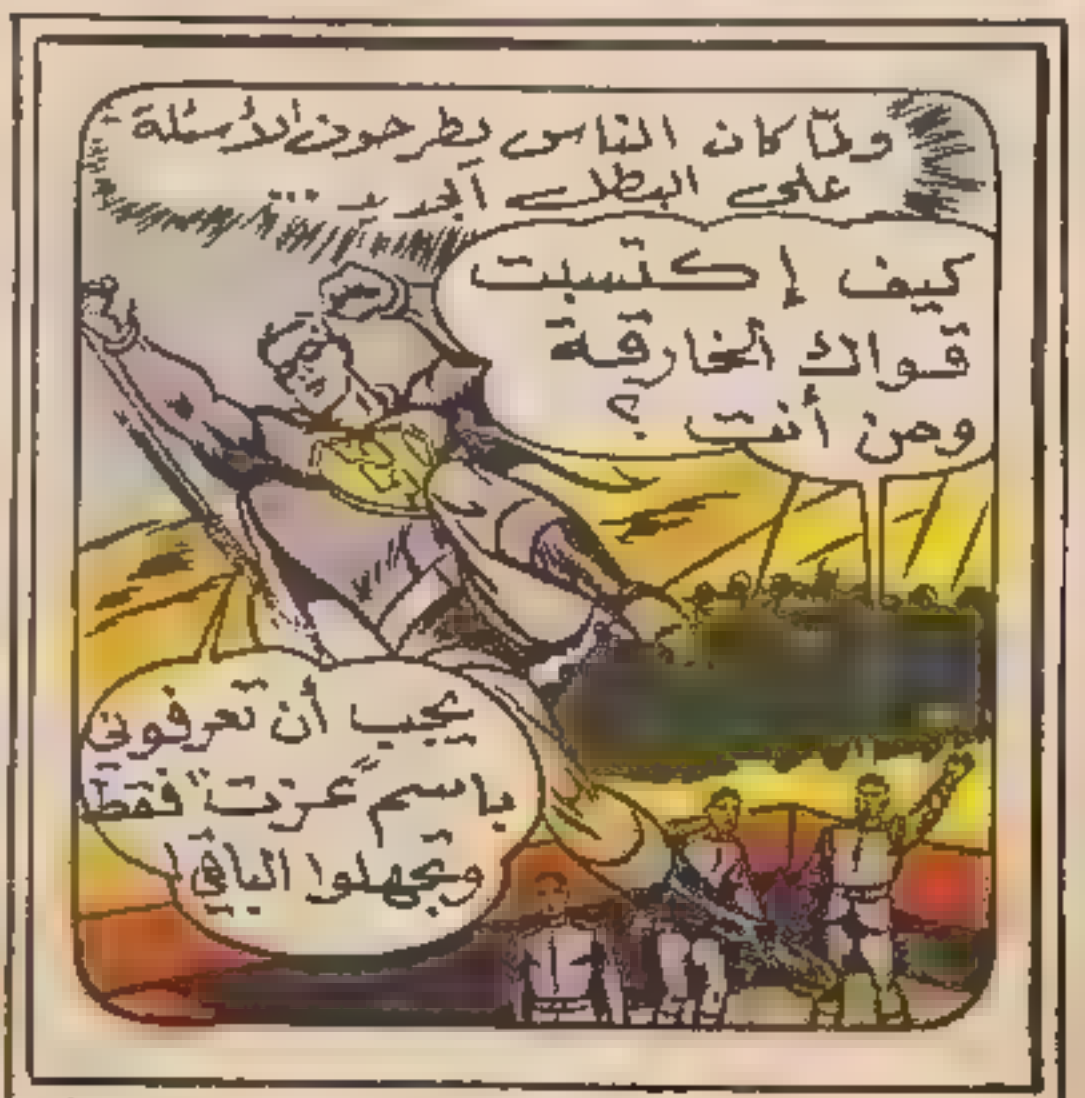 ولمّا كان الناس يطرحون الأسئلة
على البطل الجديد ...
كيف إكتسبت
قواك الخارقة
ومن أنت ؟
يجب أن تعرفوني
باسم "عزت" فقط
وتجهلوا الباقي